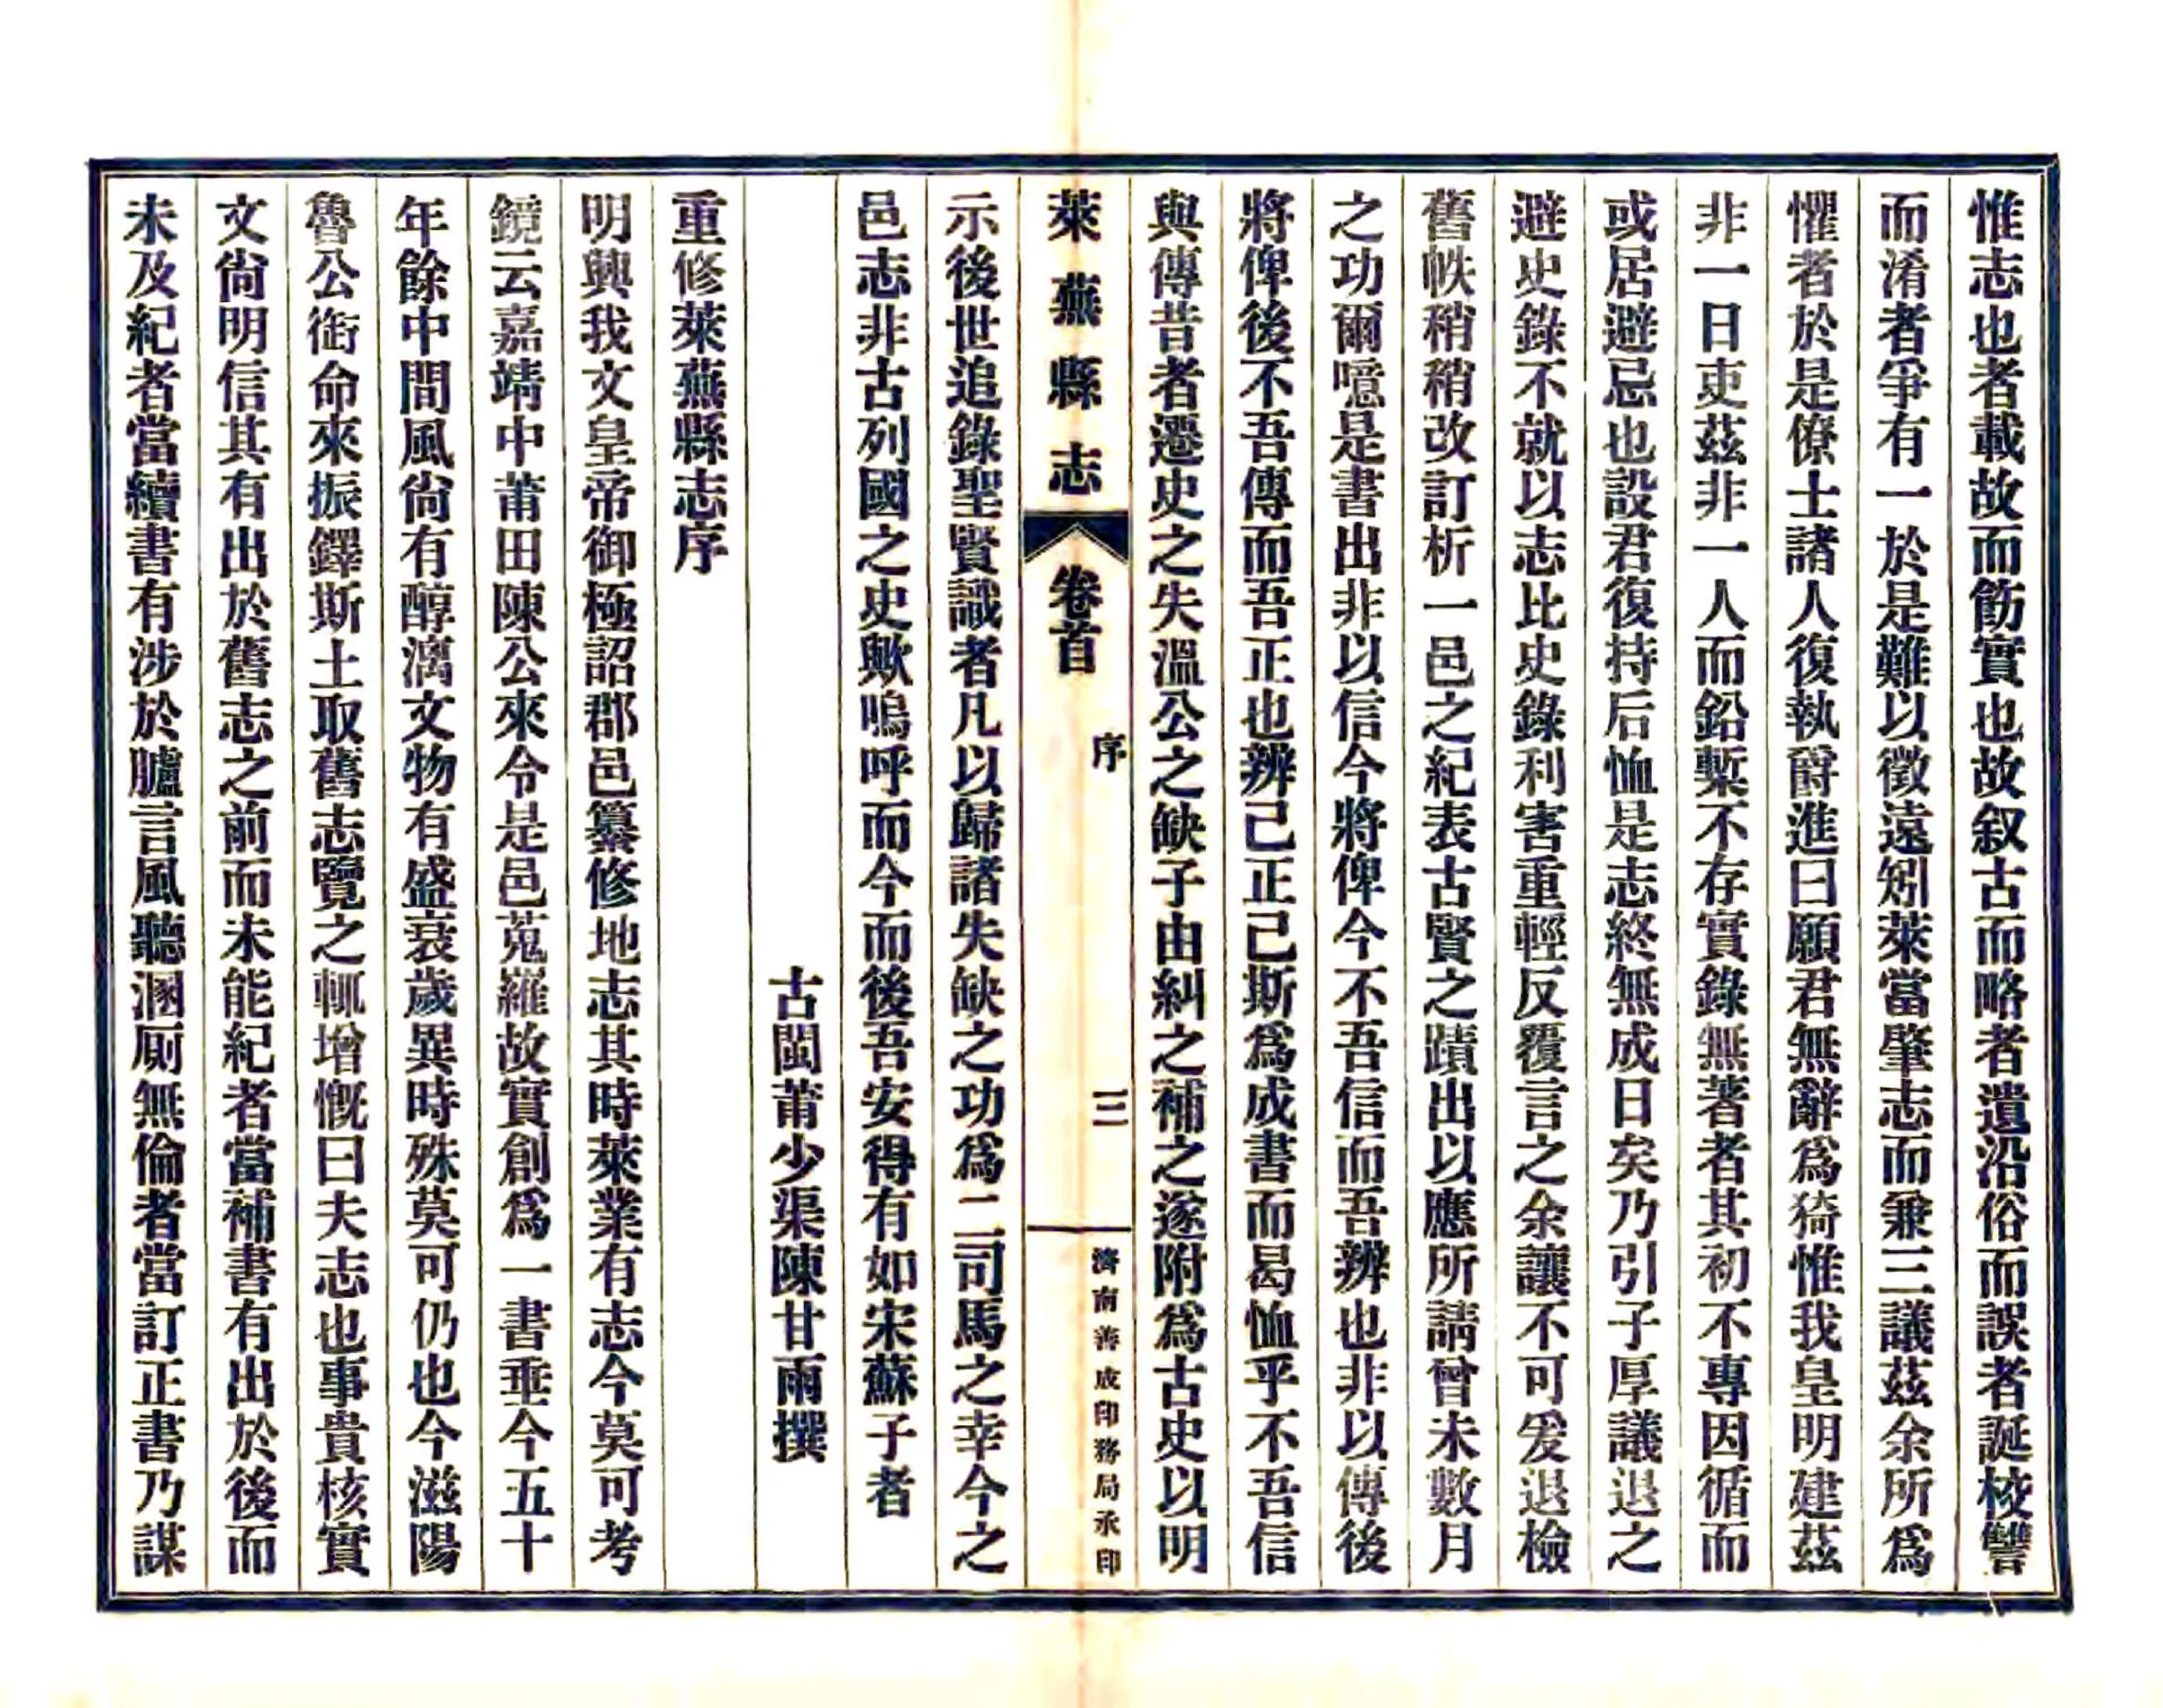 惟志也者載故而飭實也故叙古而略者遺沿俗而誤者誕校讐
而淆者爭有一於是難以徵遠矧萊當肇志而兼三議茲余所爲
懼者於是僚士諸人復執爵進曰願君無辭爲猗惟我皇明建茲
非一日吏茲非一人而鉛槧不存實錄無著者其初不專因循而
或居避忌也設君復持后恤是志終無成日矣乃引子厚議退之
避史錄不就以志比史錄利害重輕反覆言之余讓不可爰退檢
舊帙稍稍改訂析一邑之紀表古賢之蹟出以應所請曾未數月
之功爾噫是書出非以信今將俾今不吾信而吾辨也非以傳後
將俾後不吾傳而吾正也辨己正己斯爲成書而曷恤乎不吾信
與傳昔者遷史之失溫公之缺子由糾之補之遂附爲古史以明
萊蕪縣志 卷首 序 三 濟南善成印務局承印
示後世追錄聖賢識者凡以歸諸失缺之功爲二司馬之幸今之
邑志非古列國之史歟嗚呼而今而後吾安得有如宋蘇子者
古閩莆少渠陳甘雨撰
重修萊蕪縣志序
明興我文皇帝御極詔郡邑纂修地志其時萊業有志今莫可考
鏡云嘉靖中莆田陳公來令是邑蒐羅故實創爲一書垂今五十
年餘中間風尙有醇漓文物有盛衰歲異時殊莫可仍也今滋陽
魯公銜命來振鐸斯土取舊志覽之輒增慨曰夫志也事貴核實
文尙明信其有出於舊志之前而未能紀者當補書有出於後而
未及紀者當續書有涉於臚言風聽溷厠無倫者當訂正書乃謀